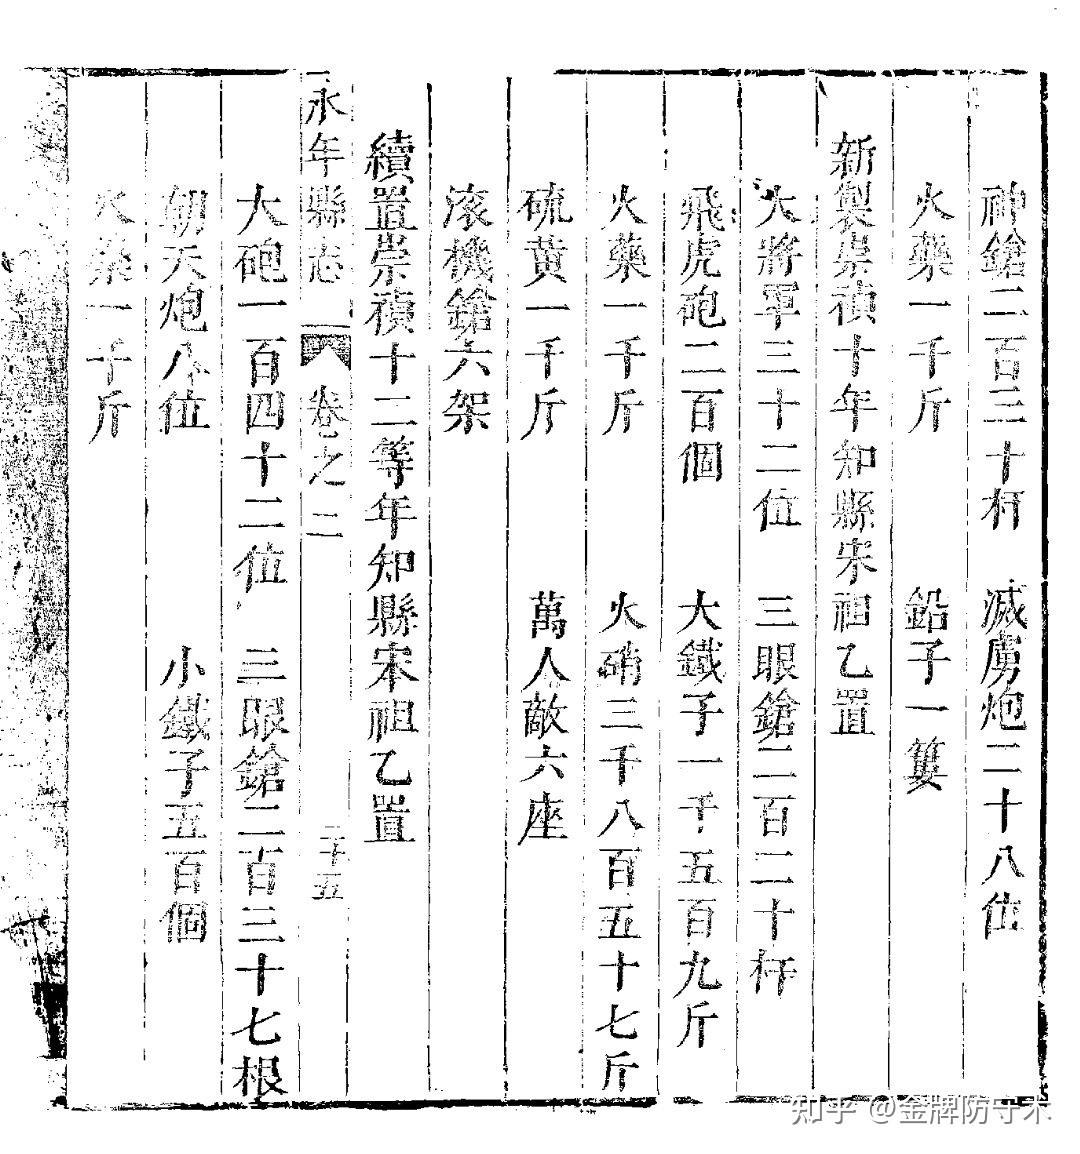 神鎗二百三十杆　滅虜炮二十八位
火藥一千斤　鉛子一簍
新製崇禎十年知縣宋祖乙置
大將軍三十二位　三眼鎗二百二十杆
飛虎砲二百個　大鐵子一千五百九斤
火藥一千斤　火硝三千八百五十七斤
硫黄一千斤　萬人敵六座
滚機鎗六架
續置崇禎十二等年知縣宋祖乙置
永年縣志　卷之二　二十五
大砲一百四十二位　三眼鎗二百三十七根
朝天炮八位　小鐵子五百個
火藥一千斤
知乎 @金牌防守木